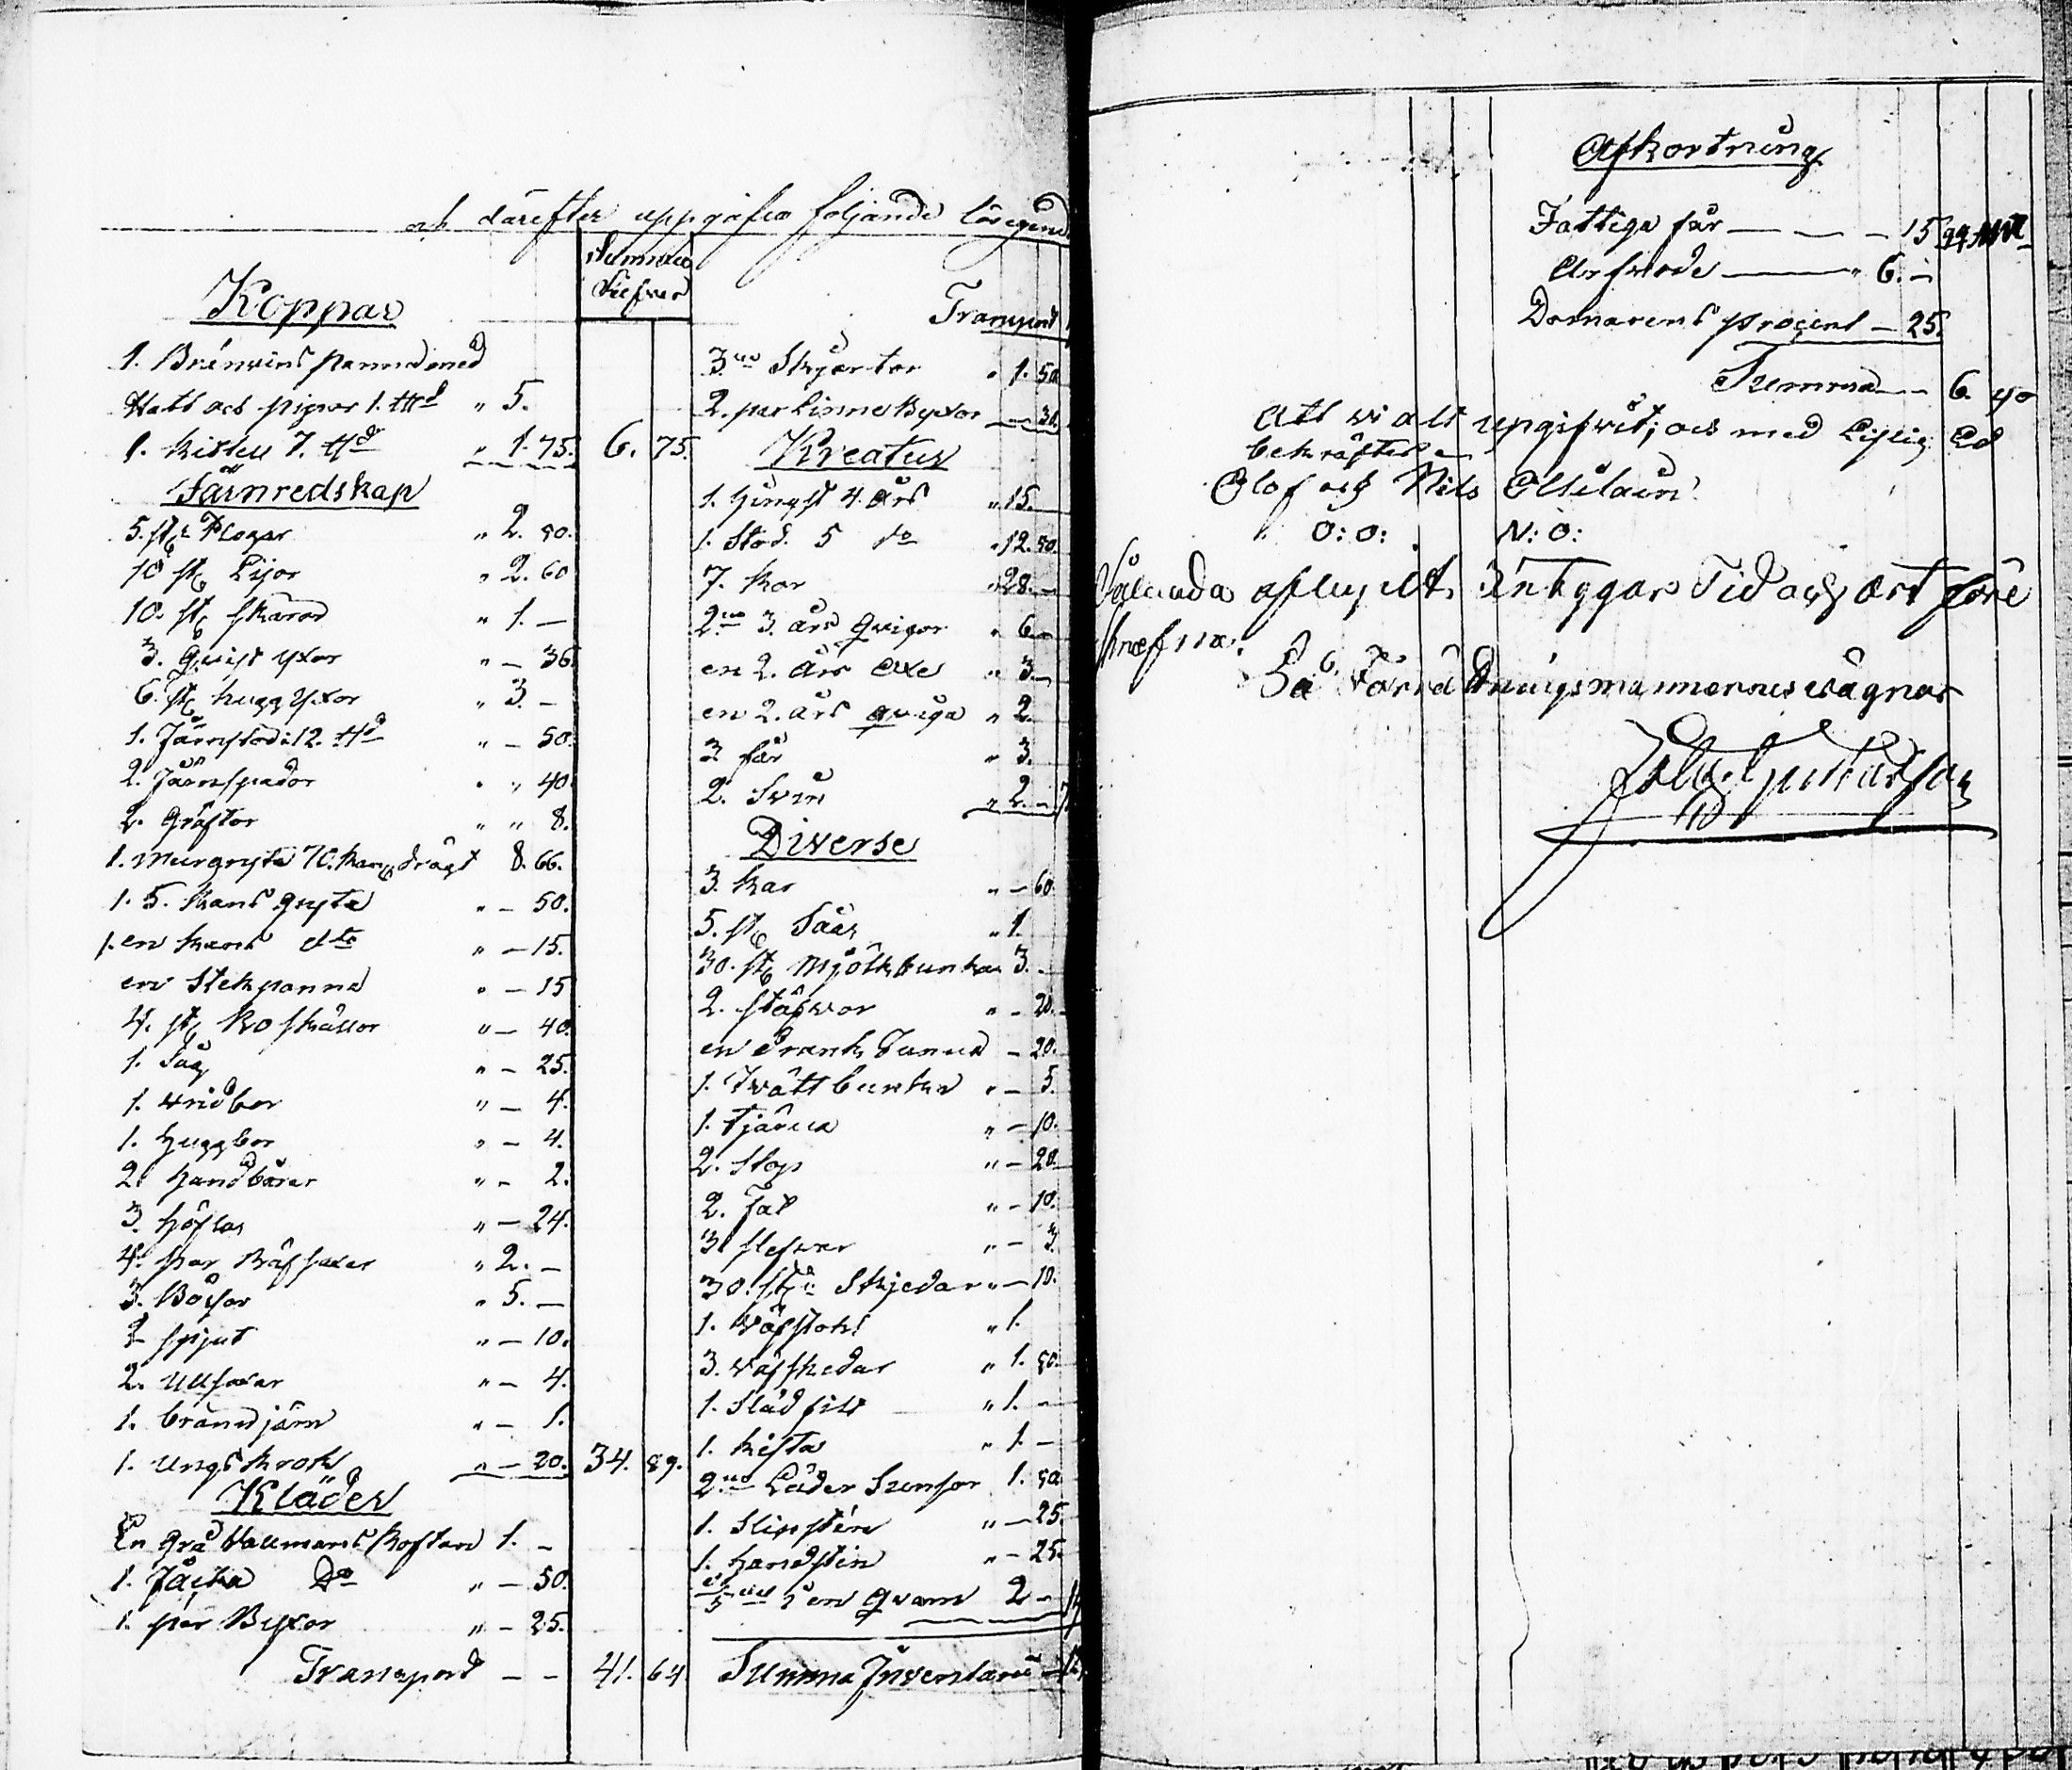 och därefter uppgåfvo följande lösegend
Summa
Silfver
Koppar
1. Brénvins panna med
Hatt och pipor 1. ttd " 5.
1. kittell 7. ttd " 1. 75. 6. 75.
Järnredskap
5. st Plogar " 2. 50.
10 st Lijor " 2. 60
10. st skäror " 1. —
3. qvist yxor " — 36.
6. st hugg yxor " 3. —
1. Järnstod à 12. ttd " — 50.
2. Järnspador " " 40.
2. gräftor " " 8.
1. murgryta 70. kan drägt 8. 66.
1. 5. kans gryta " — 50.
1. en kans dto " — 15.
en Stekpanna " — 15
4. st ko skällor " — 40.
1. Såg " — 25.
1. vridbor " — 4.
1. huggbor " — 4.
2. handbårar " — 2.
3. höflar " — 24.
4. par Räfsaxar " 2. —
3. Bössor " 5. —
2 spjut " — 10.
2. ullsaxar " — 4.
1. brännjärn " — 1.
1. ungskrok " — 20. 34. 89.
Kläder
En grå Vallmans koftan 1. —
1. Jacka Do " — 50.
1. par Byxor " — 25.
Transport — — 41. 64.
Transport
3ne Skjortor " 1. 50
2. par linne Byxor — 30.
Kreatur
1. hingst 4. års " 15.
1. Stod. 5 do " 12. 50.
7. kor " 28. —
2ne 3. års qvigor " 6. —
en 2. års oxe " 3. —
en 2. års qviga " 2.
3 får " 3.
2. Svin " 2. — 7
Diverse
3. kar " — 60.
5. st Såar " 1.
30. st Mjölkbunkar 3. —
2. stäfvor " — 20.
en Drank Tunna — 20.
1. Tvättbunka " — 5.
1. Tjärna " — 10.
2. Stop " — 20.
2. Fat " — 10.
3. slefvar " — 3.
30. st Skjedar " — 10.
1. Väfstohl " 1.
3. väfskedar " 1. 50.
1. Släd " 1. —
1. kista " 1. —
2ne Läder 1. 50
1. Slipstén " — 25.
1. handstén " — 25.
i en qvarn 2 — 14
Summa Inventarii — 1
Afkortning
Fattiga får — — — 15
Arfvode — — " 6. —
Domarens procent — 25.
Summa — 6. 40
Att vi alt upgifvit, och med Liflig Ed
bekräftar
Olof och Nils Olsilain
O: O: N: O:
Sålunda aflupit, intygar Tid och ort före
skrefna:
På Förrättningsmännernes vägnar